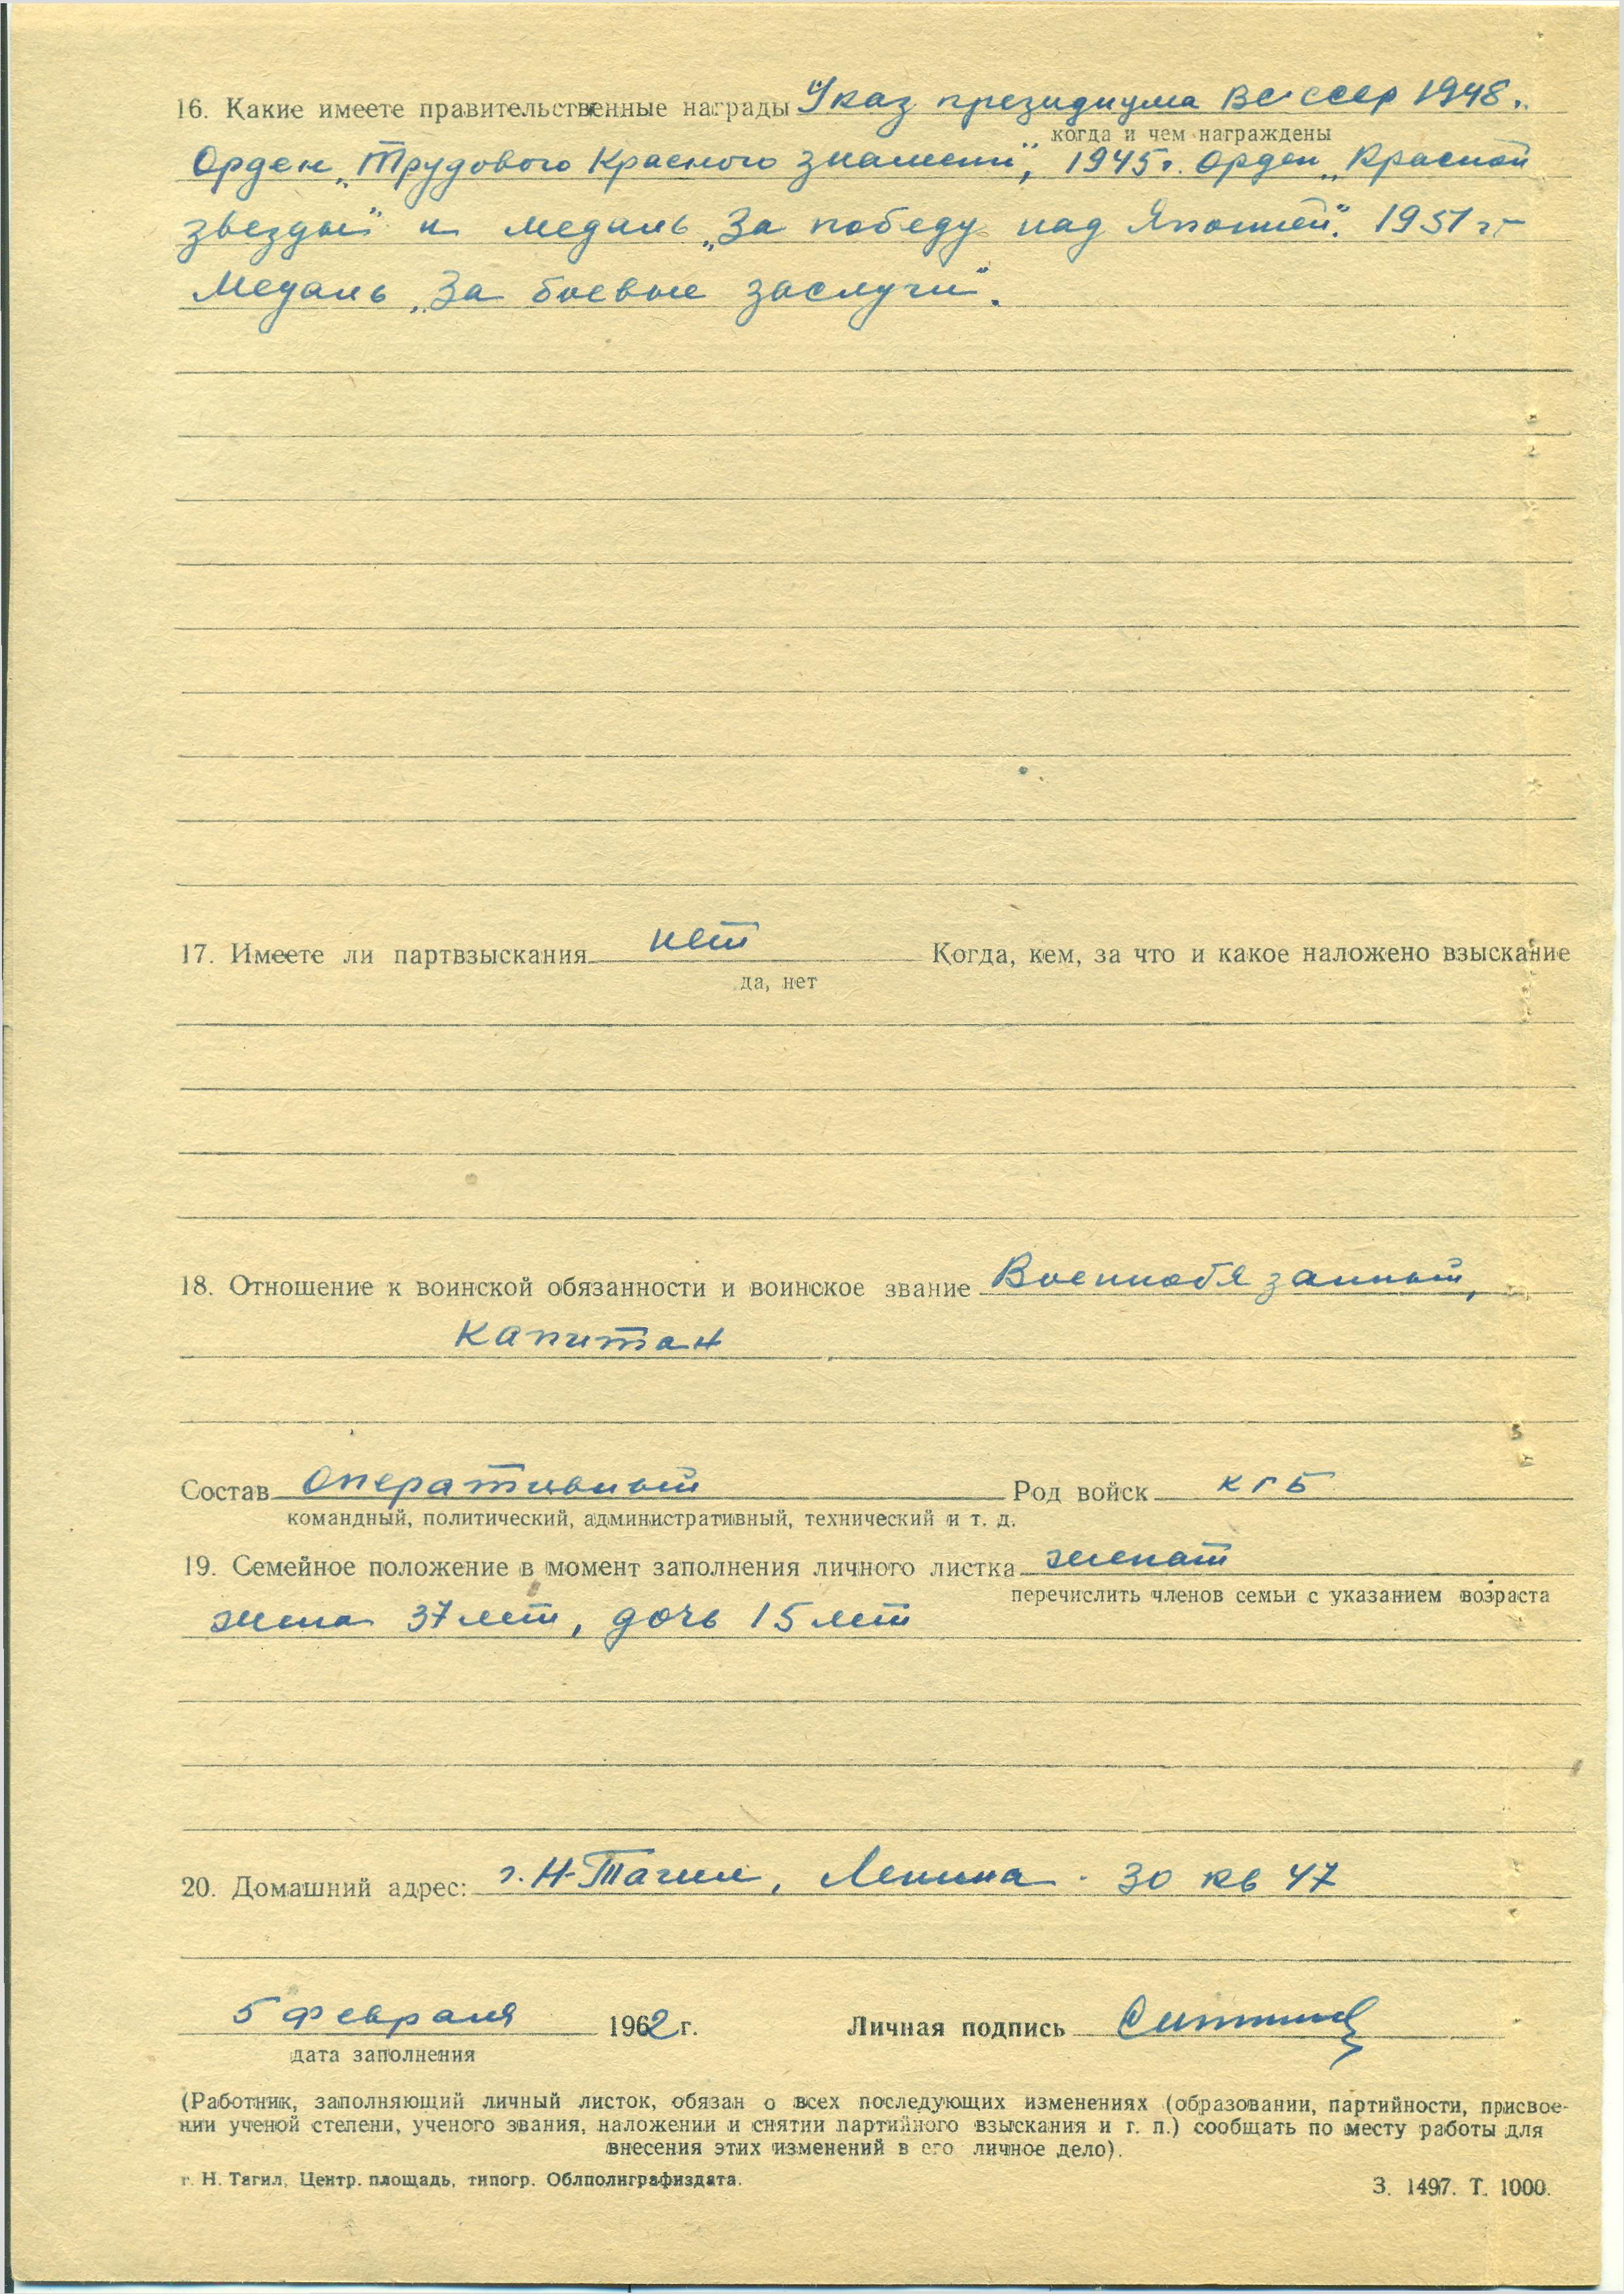 16. Какие имеете правительственные награды Указ президиума ВС СССР 1948.
когда и чем награждены
Орден „Трудового Красного Знамени", 1945 г. орден „Красной
звезды" и медаль „За победу над Японией". 1951 г-
Медаль „За боевые заслуги".
17. Имеете ли партвзыскания нет Когда, кем, за что и какое наложено взыскание
да, нет
18. Отношение к воинской обязанности и воинское звание Военнобязанный,
капитан
Состав Оперативный Род войск КГБ
командный, политический, административный, технический и т. д.
19. Семейное положение в момент заполнения личного листка женат
перечислить членов семьи с указанием возраста
жена 37 лет, дочь 15 лет
20. Домашний адрес: г. Н-Тагил, Ленина 30 кв 47
5 февраля 1962 г. Личная подпись
дата заполнения
(Работник, заполняющий личный листок, обязан о всех последующих изменениях (образовании, партийности, присвое-
нии ученой степени, ученого звания, наложении и снятии партийного взыскания и т. п.) сообщать по месту работы для
внесения этих изменений в его личное дело).
г. Н. Тагил, Центр. площадь, типогр. Облполиграфиздата. З. 1497. Т. 1000.